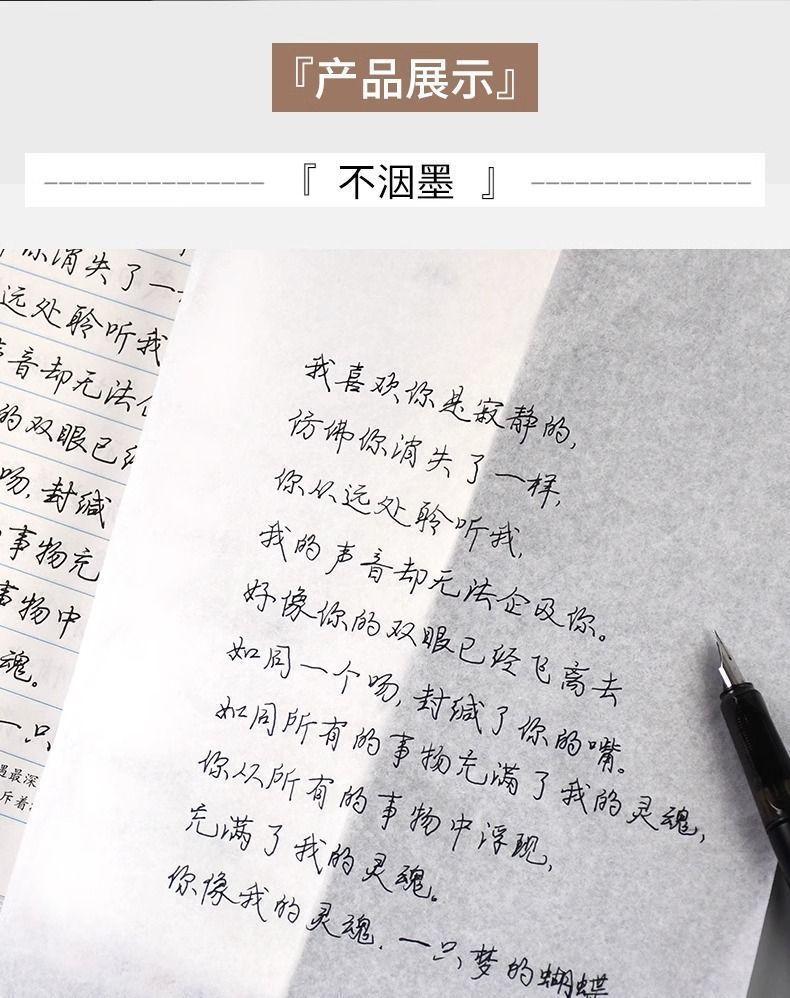 『产品展示』
『 不洇墨 』
你消失了一
远处聆听我
声音却无法企
的双眼已经
吻,封缄
事物充
事物中
魂。
一只
遇最深
斥着
我喜欢你是寂静的,
仿佛你消失了一样,
你从远处聆听我,
我的声音却无法企及你。
好像你的双眼已经飞离去
如同一个吻,封缄了你的嘴。
如同所有的事物充满了我的灵魂,
你从所有的事物中浮现,
充满了我的灵魂。
你像我的灵魂,一只梦的蝴蝶